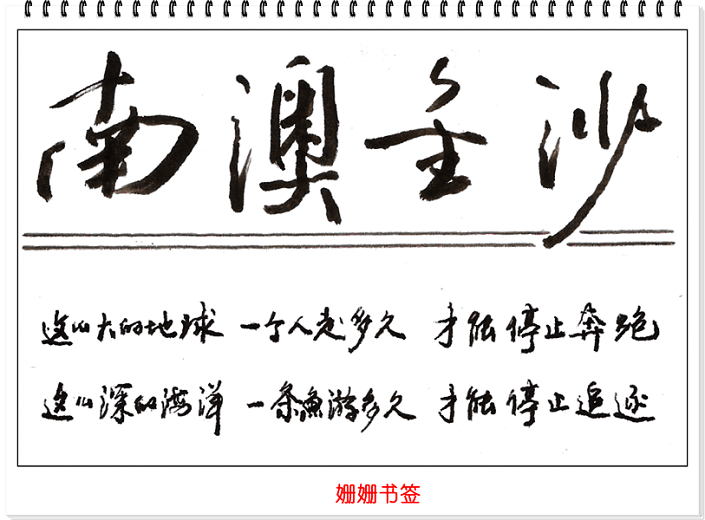 南澳金沙
这么大的地球 一个人走多久 才能停止奔跑
这么深的海洋 一条渔游多久 才能停止追逐
姗姗书签